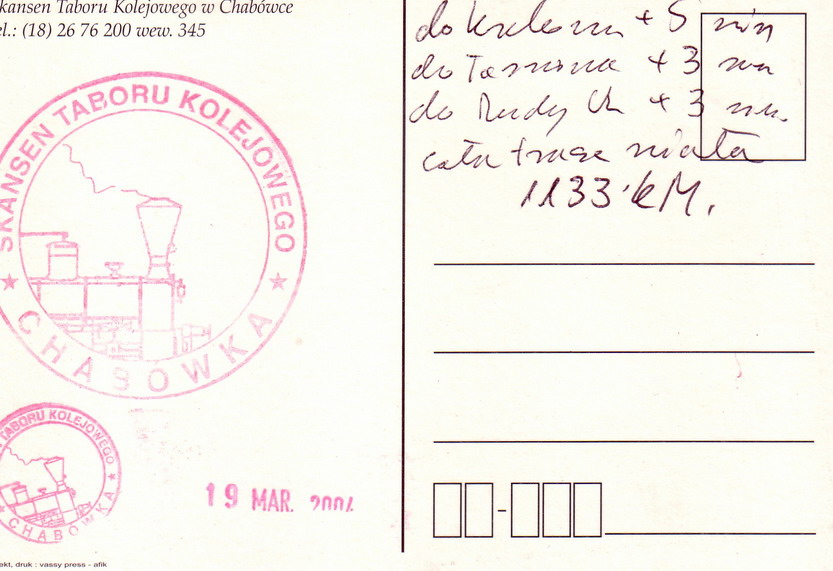 kansen Taboru Kolejowego w Chabówce
el.: (18) 26 76 200 wew. 345
SKANSEN TABORU KOLEJOWEGO
CHABÓWKA
TABORU KOLEJOWEGO
CHABÓWKA
19 MAR. 2004
ekt, druk : vassy press - afik
do Krakowa + 5 min
do + 3
do Rudy + 3
cała trasa miała
1133 kM.